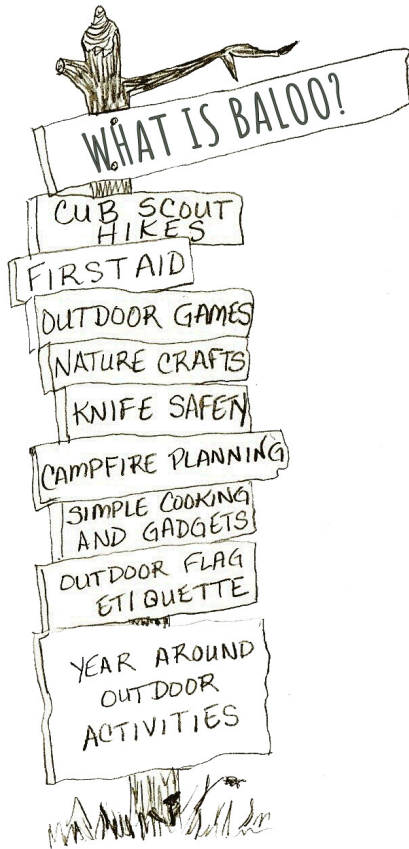 WHAT IS BALOO?
CUB SCOUT
HIKES
FIRST AID
OUTDOOR GAMES
NATURE CRAFTS
KNIFE SAFETY
CAMPFIRE PLANNING
SIMPLE COOKING
AND GADGETS
OUTDOOR FLAG
ETIQUETTE
YEAR AROUND
OUTDOOR
ACTIVITIES